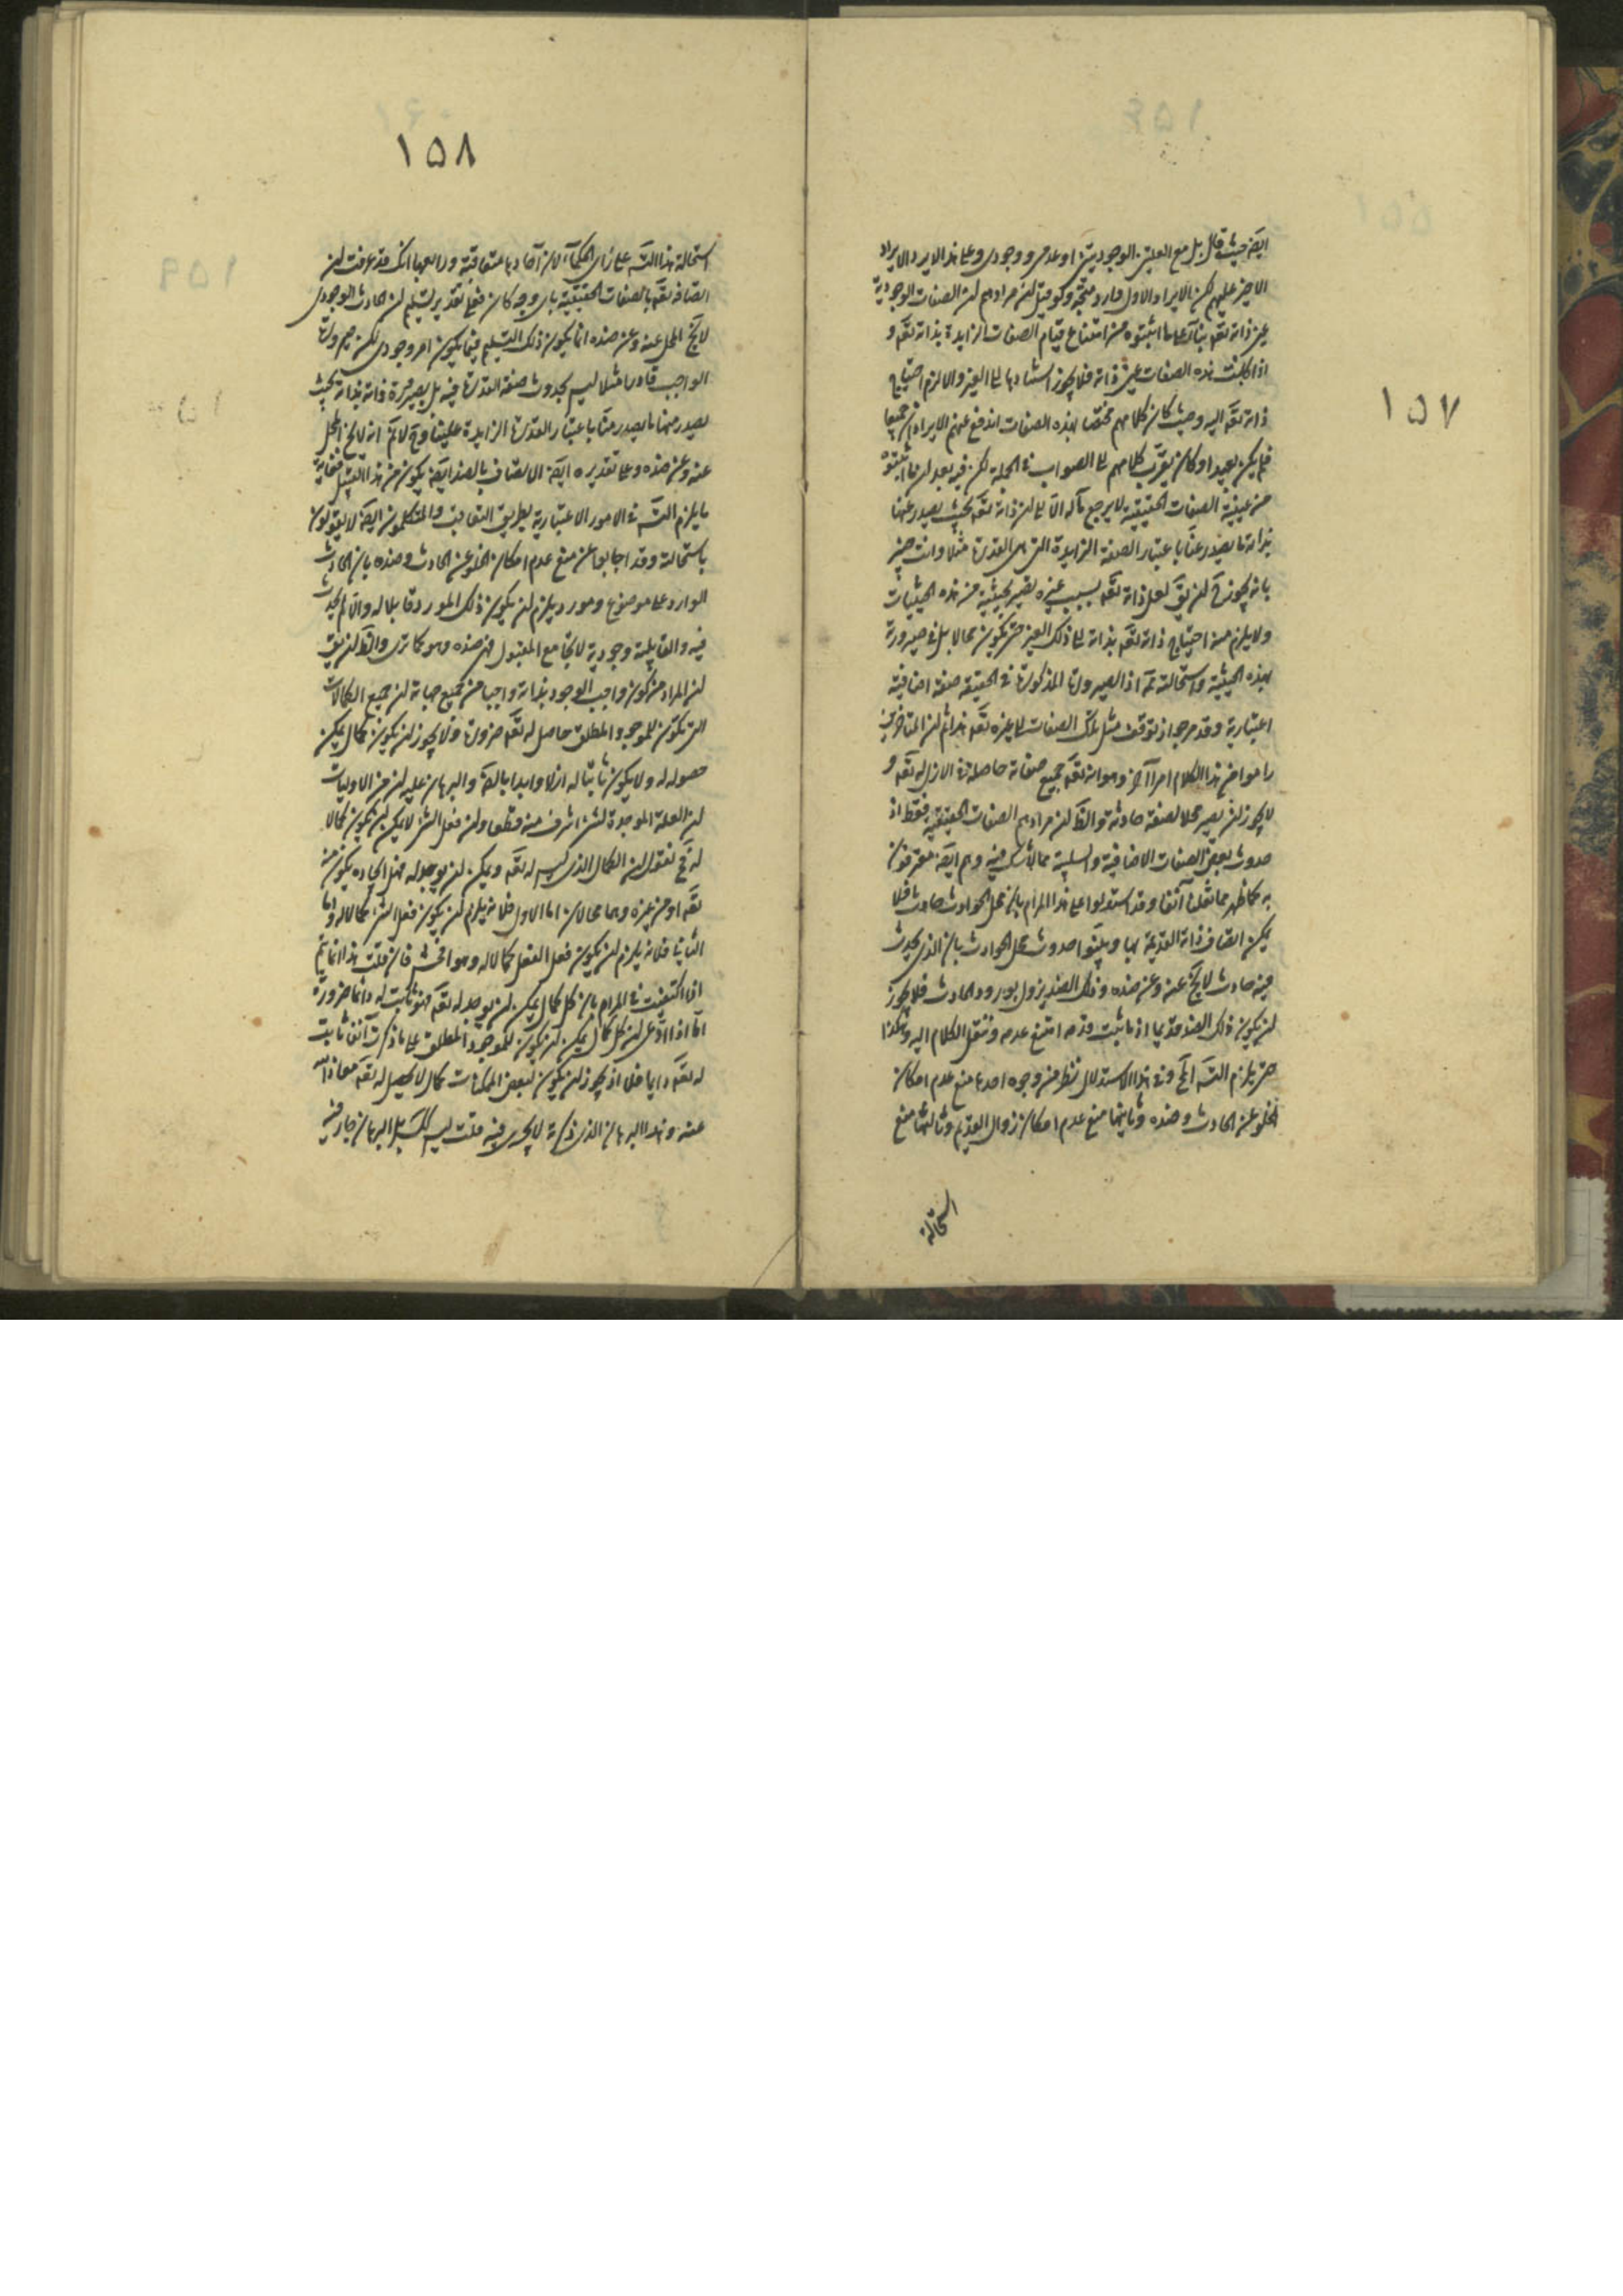 ١٥٧
ايضا حيث قال بل مع العلتين الوجوديتين او عدمي ووجودي وعلى هذا لا يرد الايراد
الاخير عليهم لكن الايراد الاول وارد متجه ولو قيل ان مرادهم ان الصفات الوجودية
عين ذاته تعه بناء على ما اثبتوه من امتناع قيام الصفات الزايدة بذاته تعه و
اذا كانت هذه الصفات عين ذاته فلا يجوز استنادها الى الغير والا لزم احتياج
ذاته تعه اليه وحيث كان كلامهم مختصا بهذه الصفات اندفع عنهم الايرادان جميعا
لم يكن بعيدا وكان يقرب كلامهم الى الصواب في الجملة لكن فيه بعد ان ما اثبتوه
من عينية الصفات الحقيقية لا يرجع مآله الا الى ان ذاته تعه بحيث يصدر عنها
بذاته ما يصدر عنا باعتبار الصفة الزايدة التي هي القدرة مثلا وانت خبير
بانه يجوز ح ان يق لعل ذاته تعه بسبب غيره يصير بحيثية من هذه الحيثيات
ولا يلزم منه احتياج ذاته تعه بذاته الى ذلك الغير حتى يكون محالا بل في صيرورته
بهذه الحيثية واستحالته مم اذ الصيرورة المذكورة في الحقيقة صفة اضافية
اعتبارية وقد مر جواز توقف مثل تلك الصفات على غيره تعه هذا ثم ان المتاخرين
راموا من هذا الكلام امرا آخر وهو انه تعه جميع صفاته حاصلة في الازل له تعه و
لا يجوز ان يصير محلا لصفة حادثة والظ ان مرادهم الصفات الحقيقية فقط اذ
حدوث بعض الصفات الاضافية والسلبية مما لا شك فيه وهم ايضا معترفون
به كما ظهر مما نقلنا آنفا وقد استدلوا على هذا المرام بان محل الحوادث حادث فلا
يمكن اتصاف ذاته القديمة بها وبينوا حدوث محل الحوادث بان الذي يحدث
فيه حادث لا يخ عنه وعن ضده وذلك الضد يزول بورود الحادث فلا يجوز
ان يكون ذلك الضد قديما اذ ما ثبت قدمه امتنع عدمه وننقل الكلام اليه وهكذا
حتى يلزم التسه المح وفي هذا الاستدلال نظر من وجوه احدها منع عدم امكان
الخلو عن الحادث وضده وثانيها منع عدم امكان زوال القديم وثالثها منع
استحالة
١٥٨
استحالة هذا التسه على راي الحكمآء لان آحادها متعاقبة ورابعها انك قد عرفت ان
اتصافه تعه بالصفات الحقيقية باي وجه كان فعلى تقدير تسليم ان الحادث الوجودي
لا يخ المحل عنه وعن ضده انما يكون ذلك التسليم فيما يكون امر وجودي لكن صيرورة
الواجب قادرا مثلا ليس بحدوث صفة القدرة فيه بل بصيرورة ذاته بذاته بحيث
يصدر منها ما يصدر منا باعتبار القدرة الزايدة علينا وح لا نم انه لا يخ المحل
عنه وعن ضده وعلى تقديره ايضا الاتصاف بالضد ايضا يكون من هذا القبيل فغاية
ما يلزم التسه في الامور الاعتبارية بطريق التعاقب والمتكلمون ايضا لا يقولون
باستحالته وقد اجابوا عن منع عدم امكان الخلو عن الحادث وضده بان الحادث
الوارد على موضوع ومورد يلزم ان يكون ذلك المورد قابلا له والا لم يحدث
فيه والقابلية وجودية لا تجامع المقبول فهي ضده وهو كما ترى والظ ان يق
ان المراد من كون واجب الوجود بذاته واجبا من جميع جهاته ان جميع الكمالات
التي تكون للموجود المطلق حاصل له تعه ضرورة ولا يجوز ان يكون كمال يمكن
حصوله له ولا يكون ثابتا له ازلا وابدا بالضه والبرهان عليه ان من الاوليات
ان العلة الموجدة لشئ اشرف منه قطعا وان فعل الشئ لا يمكن ان يكون كمالا
له فح نقول ان الكمال الذي ليس له تعه ويمكن ان يوجد له فهل ايجاده يكون منه
تعه او من غيره وهما محالان اما الاول فلانه يلزم ان يكون فعل الشئ كمالا له واما
الثاني فلانه يلزم ان يكون فعل الفعل كمالا له وهو افحش فان قلت هذا انما يتم
اذا اكتفيت في المرام بان كل كمال يمكن ان يوجد له تعه فهو ثابت له دائما ضرورة
اما اذا ادعى ان كل كمال يمكن ان يكون للموجود المطلق على ما ذكرت آنفا ثابت
له تعه دايما فلا اذ يجوز ان يكون لبعض الممكنات كمال لا يحصل له تعه معاذ الله
عنه وهذا البرهان الذي ذكرته لا يجري فيه قلت ليس كك بل البرهان جار فيه